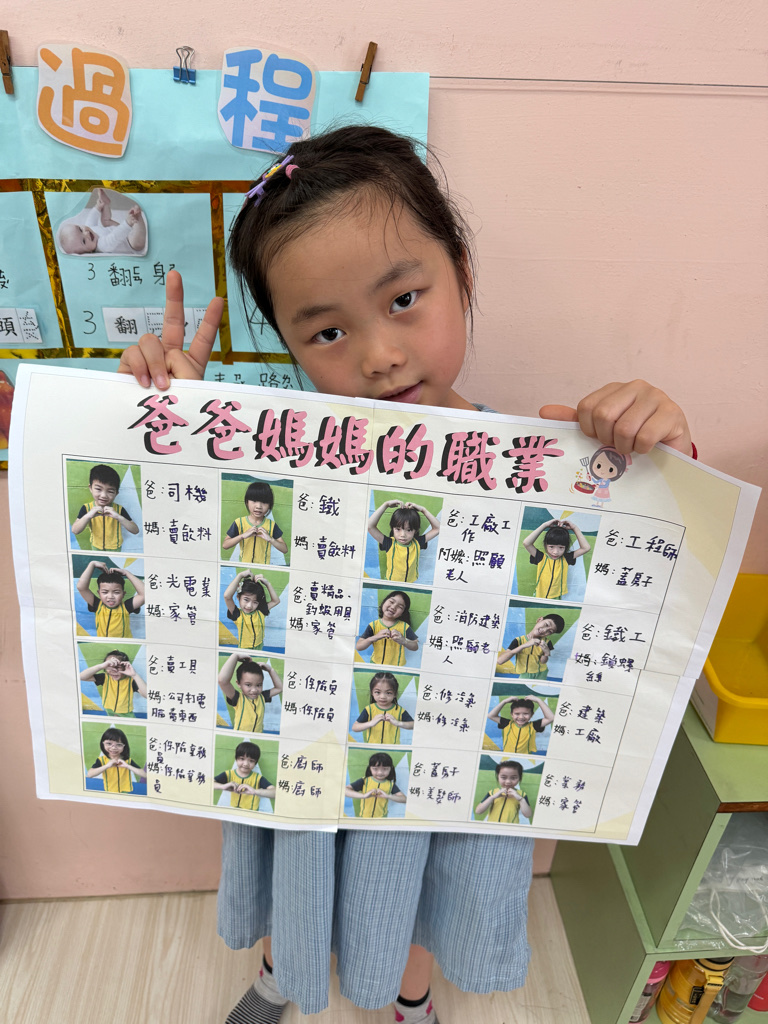 過程
3 翻身
3 翻
頭
路
爸爸媽媽的職業
爸:司機
媽:賣飲料
爸:鐵
媽:賣飲料
爸:工廠工
作
阿嬤:照顧
老人
爸:工程師
媽:蓋房子
爸:光電業
媽:家管
爸:賣精品、
釣蝦用具
媽:家管
爸:消防建築
媽:照顧老
人
爸:鐵工
媽:鎖螺
絲
爸:賣工具
媽:公司打電
腦賣東西
爸:保險員
媽:保險員
爸:修冷氣
媽:修冷氣
爸:建築
媽:工廠
爸:保險業務
員
媽:保險業務
員
爸:廚師
媽:廚師
爸:蓋房子
媽:美髮師
爸:業務
媽:家管